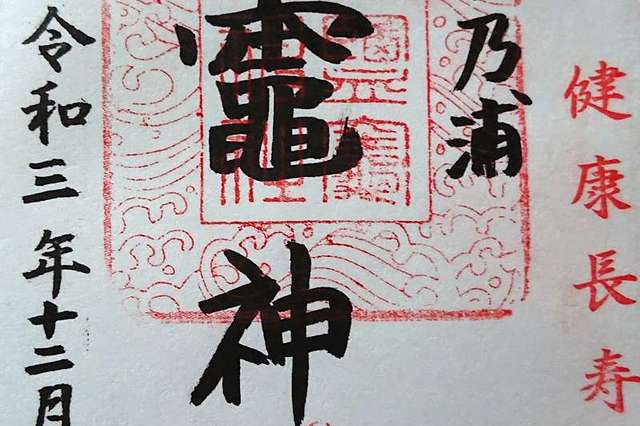 健康長寿
乃浦
竈神
令和三年十二月